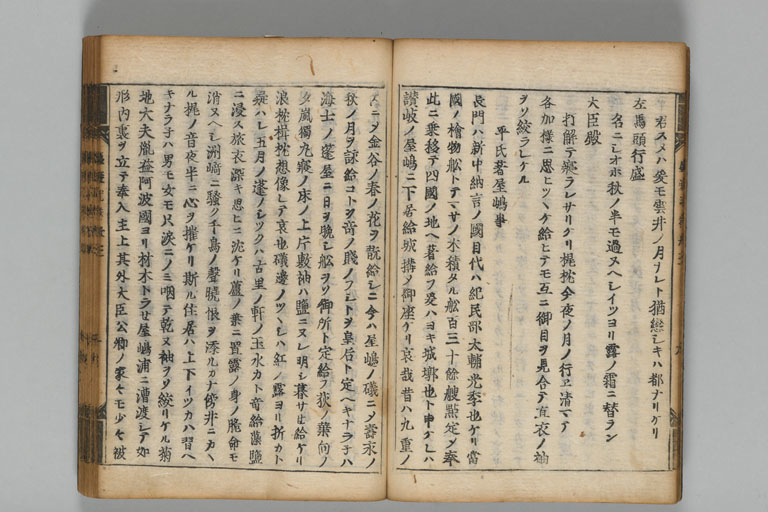 君スメハ爰モ雲井ノ月ナレト猶恋シキハ都ナリケリ
左馬頭行盛
名ニシオホ秋ノ半モ過ヌヘシイツヨリ露ノ霜ニ替ラン
大臣殿
打解テ寝ラレサリケリ梶枕今夜ノ月ノ行エ清マテ
各加様ニ思ヒツヽケ給ヒテモ互ニ御目ヲ見合テ直衣ノ袖
ヲソ絞ラレケル
平氏著屋嶋事
長門ハ新中納言ノ國目代ハ紀民部大輔光季也ケリ當
國ノ檜物舩トテマサノ木積タル舩百三十餘艘點定メ奉
此ニ乗移テ四國ノ地ヘ著給フ爰ハヨキ城墎也ト申ケレハ
讃岐ノ屋嶋ニ下居給城搆メ御座ケリ哀哉昔ハ九重ノ
内ニメ金谷ノ春ノ花ヲ翫給シニ今ハ屋嶋ノ礒ニメ壽永ノ
秋ノ月ヲ詠給コトヲ昔ノ賤ノフシトヲ皇后ト定ヘキナラ子ハ
海士ノ蓬屋ニ日ヲ晩シ舩ヲソ御所ト定給フ荻ノ葉向ノ
夕嵐獨丸寝ノ床ノ上片敷袖ハ塩ニヌレ明シ暮サせ給ケリ
浪枕揖枕想像レテ哀也礒邊ノツヽシハ紅ノ露ヨリ折カト
疑ハレ五月ノ蓬ノシツクハ古里ノ軒ノ玉水カト奇給藻塩
ニ浸ス旅衣深キ思ヒニ沈ケリ蘆ノ葉ニ置露ノ身ノ脆命モ
消ヌヘシ洲崎ニ騒ク千鳥ノ聲曉恨ヲ添ルカナ傍井ニカヽ
ル梶ノ音夜半ニ心ヲ摧ケリ斯ル住居ハ上下イツカハ習ヘ
キナラ子ハ男モ女モ只涙ニノミ咽テ乾ヌ袖ヲソ絞リケル菊
地大夫胤益阿波國ヨリ材木トラせ屋嶋浦ニ漕渡シテ如
形内裏ヲ立テ奉入主上其外大臣公卿ノ家せモ少せ被